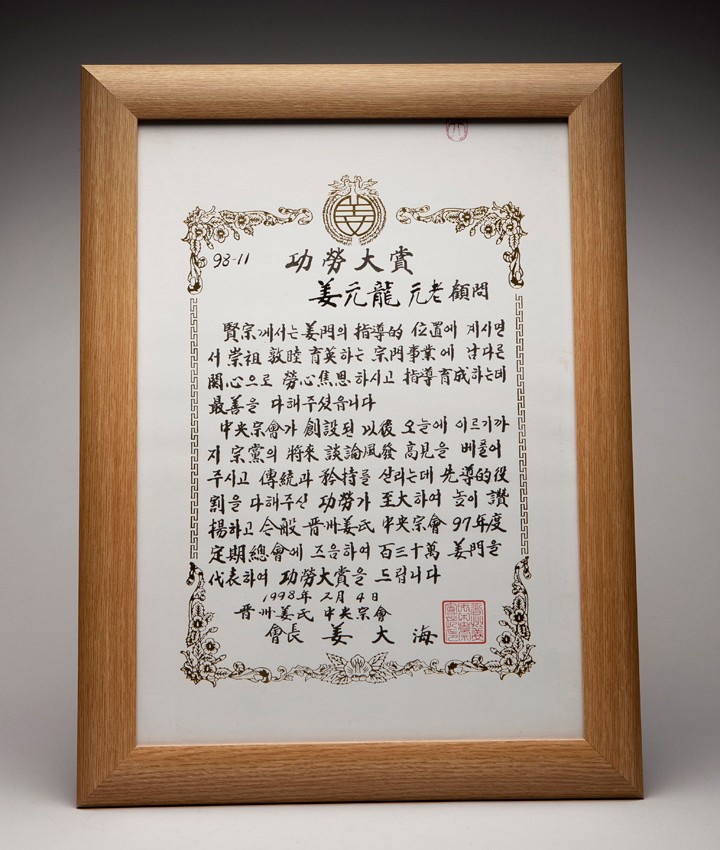 姜
98-11
功勞大賞
姜元龍 元老 顧問
賢宗께서는 姜門의 指導的 位置에 계시면
서 崇祖 敦睦 育英하는 宗門事業에 남다른
關心으로 勞心焦思하시고 指導育成하는데
最善을 다해주셨읍니다
中央宗會가 創設된 以後 오늘에 이르기까
지 宗黨의 將來 談論風發 高見을 베풀어
주시고 傳統과 矜持를 살리는데 先導的役
割을 다해주신 功勞가 至大하여 높이 讚
揚하고 今般 晋州姜氏 中央宗會 97年度
定期總會에 즈음하여 百三十萬 姜門을
代表하여 功勞大賞을 드립니다
1998年 2月 4日
晋州姜氏 中央宗會
會長 姜大海